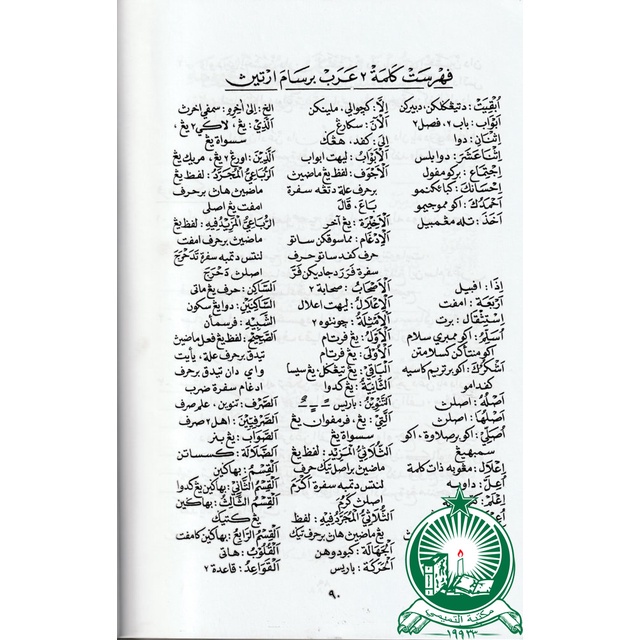 فهرست كلمة ٢ عرب برسام ارتيث
أبقيت: دتيڠݢلكن، دبيركن
أبواب: باب ٢، فصل ٢
إثنان: دوا
إثنا عشر: دوابلس
إجتماع: بركومفول
إحسانك: كباءيكنمو
أحمدك: اكو مموجيمو
أخذ: تله مڠمبيل
إذا: افبيل
أربعة: امفت
إستثقال: برت
أسلم: اكو ممبري سلام
أشكرك: اكو برتريم كاسيه
كفدامو
أصله: اصلث
أصلها: اصلث
أصلي: اكو برصلاوة، اكو
سمبهيڠ
إعلال: مڠوبه ذات كلمة
أعل: داوبه
إعلم:
إلا: كچوالي، ملينكن
الآن: سكارڠ
إلى: كفد، هڠݢ
الأبواب: ليهت ابواب
الأجوف: لفظ يڠ ماضيث
برحرف علة دتڠه سفرة
باع، قال
الأخيرة: يڠ آخر
الإدغام: مماسوقكن ساتو
حرف كفد ساتو حرف
سفرة فرر دجاديكن فر
الأصحاب: صحابة ٢
الإعلال: ليهت اعلال
الأمثلة: چونتوه ٢
الأول: يڠ فرتام
الأولى: يڠ فرتام
الباقي: يڠ تيڠݢل، يڠ سيسا
الثانية: يڠ كدوا
التنوين: باريس
التي: يڠ، فرمفوان يڠ
سسواة يڠ
الثلاثي المزيد: لفظ يڠ
ماضيث براصل تيݢ حرف
لنتس دتمبه سفرة أكرم
اصلث كرم
الثلاثي المجرد فيه: لفظ
يڠ ماضيث هاث برحرف تيݢ
الجهالة: كبودوهن
الحركة: باريس
الخ: إلى آخره: سمفي اخرث
الذي: يڠ، لاكي ٢ يڠ،
سسواة يڠ
الذين: اورڠ ٢ يڠ، مريك يڠ
الرباعي المجرد: لفظ يڠ
ماضيث هاث برحرف
امفت يڠ اصلي
الرباعي المزيد فيه: لفظ يڠ
ماضيث برحرف امفت
لنتس دتمبه سفرة تدحرج
اصلث دحرج
الساكن: حرف يڠ ماتي
الساكنين: دوا يڠ سكون
الشبيه: فرسمان
الصحيح: لفظ يڠ فعل ماضيث
تيدق برحرف علة، يأيت
واي دان تيدق بر
ادغام سفرة ضرب
الصرف: تنوين، علم صرف
الصرفيين: اهل ٢ صرف
الصواب: يڠ بنر
الضلالة: كسساتن
القسم: بهاݢين
القسم الثاني: بهاݢين يڠ كدوا
القسم الثالث: بهاݢين
يڠ كتيݢ
القسم الرابع: بهاݢين كامفت
القلوب: هاتي
القواعد: قاعدة ٢
٩٠
مكتبة التميمي
١٩٩٣